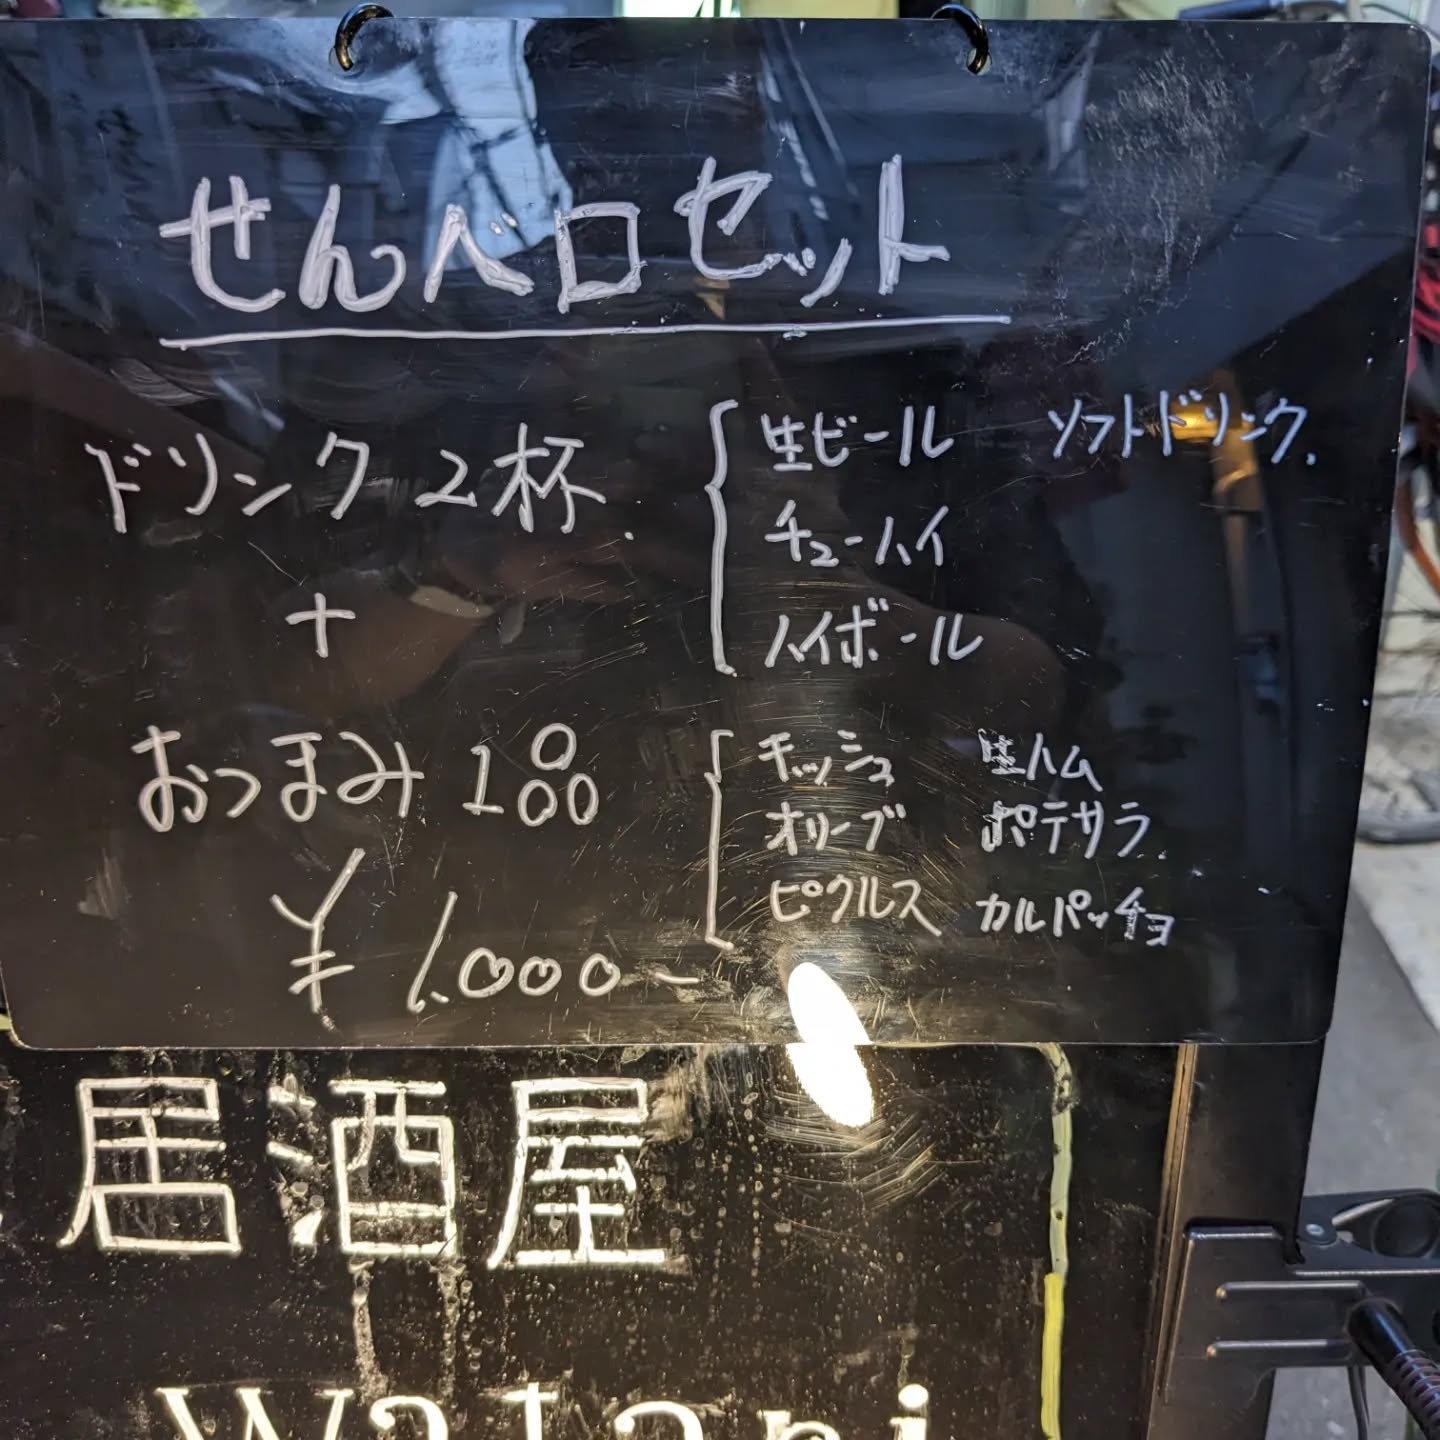 せんベロセット
ドリンク2杯.
生ビール ソフトドリンク.
チューハイ
ハイボール
+
おつまみ1品
キッシュ 生ハム
オリーブ ポテサラ.
ピクルス カルパッチョ
¥1.000-
居酒屋
Watani